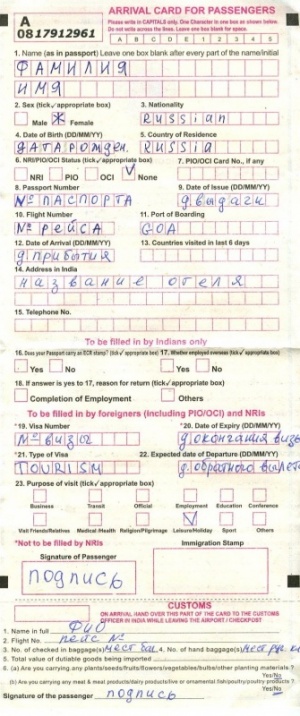 ARRIVAL CARD FOR PASSENGERS
A
0817912961
Please write in CAPITALS only. One Character in one box as shown below.
Do not write across the lines. Leave one blank box for space.
A B C D E 1 2 3 4 5
1. Name (as in passport) Leave one box blank after every part of the name/initial
ФАМИЛИЯ
ИМЯ
2. Sex (tick ✓ appropriate box) 3. Nationality
Male Female Russian
4. Date of Birth (DD/MM/YY) 5. Country of Residence
датарожден. Russia
6. NRI/PIO/OCI Status (tick ✓ appropriate box) 7. PIO/OCI Card No., if any
NRI PIO OCI None
8. Passport Number 9. Date of Issue (DD/MM/YY)
№ПАСПОРТА двыдачи
10. Flight Number 11. Port of Boarding
№рейса GOA
12. Date of Arrival (DD/MM/YY) 13. Countries visited in last 6 days
дприбытия
14. Address in India
название отеля
15. Telephone No.
To be filled in by Indians only
16. Does your Passport carry an ECR stamp? (tick ✓ appropriate box) 17. Whether employed overseas (tick ✓ appropriate box)
Yes No Yes No
18. If answer is yes to 17, reason for return (tick ✓ appropriate box)
Completion of Employment Others
To be filled in by foreigners (Including PIO/OCI) and NRIs
*19. Visa Number *20. Date of Expiry (DD/MM/YY)
№визы д.окончания визы
*21. Type of Visa 22. Expected date of Departure (DD/MM/YY)
TOURISM д.обратного вылета
23. Purpose of visit (tick ✓ appropriate box)
Business Transit Official Employment Education Conference
Visit Friends/Relatives Medical /Health Religion/Pilgrimage Leisure/Holiday Sport Others
*Not to be filled by NRIs
Signature of Passenger Immigration Stamp
подпись
CUSTOMS
ON ARRIVAL HAND OVER THIS PART OF THE CARD TO THE CUSTOMS
OFFICER IN INDIA WHILE LEAVING THE AIRPORT / CHECKPOST
1. Name in full ФИО
2. Flight No. рейс №
3. No. of checked in baggage(s) мест баг. 4. No. of hand baggage(s) мест руч. кл
5. Total value of dutiable goods being imported
6. (a) Are you carrying any plants/seeds/fruits/flowers/vegetables/bulbs/other planting materials ?
Yes/No
(b) Are you carrying any meat & meat products/dairy products/live or ornamental fish/poultry/poultry products ?
Yes/No
Signature of the passenger подпись